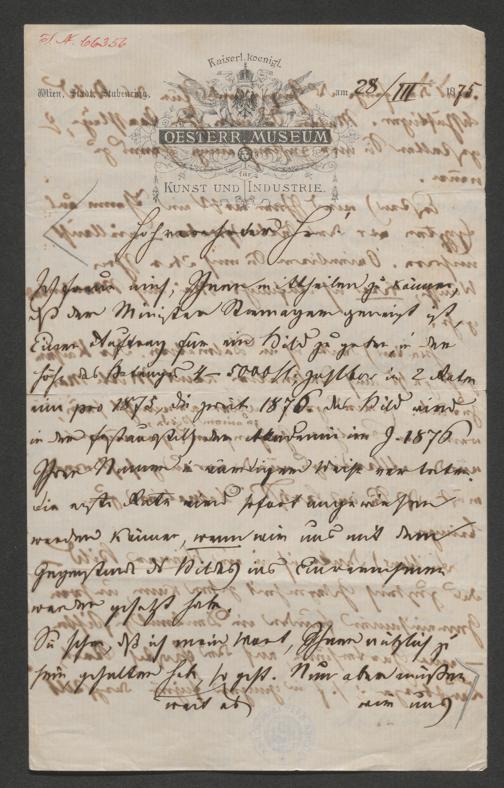 I. N. 66356
Kaiserl. koenigl.
Wien, Stadt, Stubenring, am 28/III 1875.
OESTERR. MUSEUM
für
KUNST UND INDUSTRIE.
Hochverehrter Herr,
Es freut mich, Ihnen mittheilen zu können,
daß der Minister Stremayer geneigt ist,
Einen Auftrag für ein Bild zu geben in der
Höhe des Betrages 4–5000 fl. zahlbar in 2 Raten
eine pro 1875 die zweite 1876. das Bild wird
in der Festausstellg der Akademie im J. 1876
Ihren Namen in würdiger Weise vertreten.
die erste Rate wird sofort angewiesen
werden können, wenn wir uns mit dem
Gegenstande des Bildes ins Einvernehmen
werden gesetzt haben.
Sie sehen, daß ich mein Wort, Ihnen nützlich zu
sein gehalten habe, so gut. Nun aber müssen
weit es wir uns